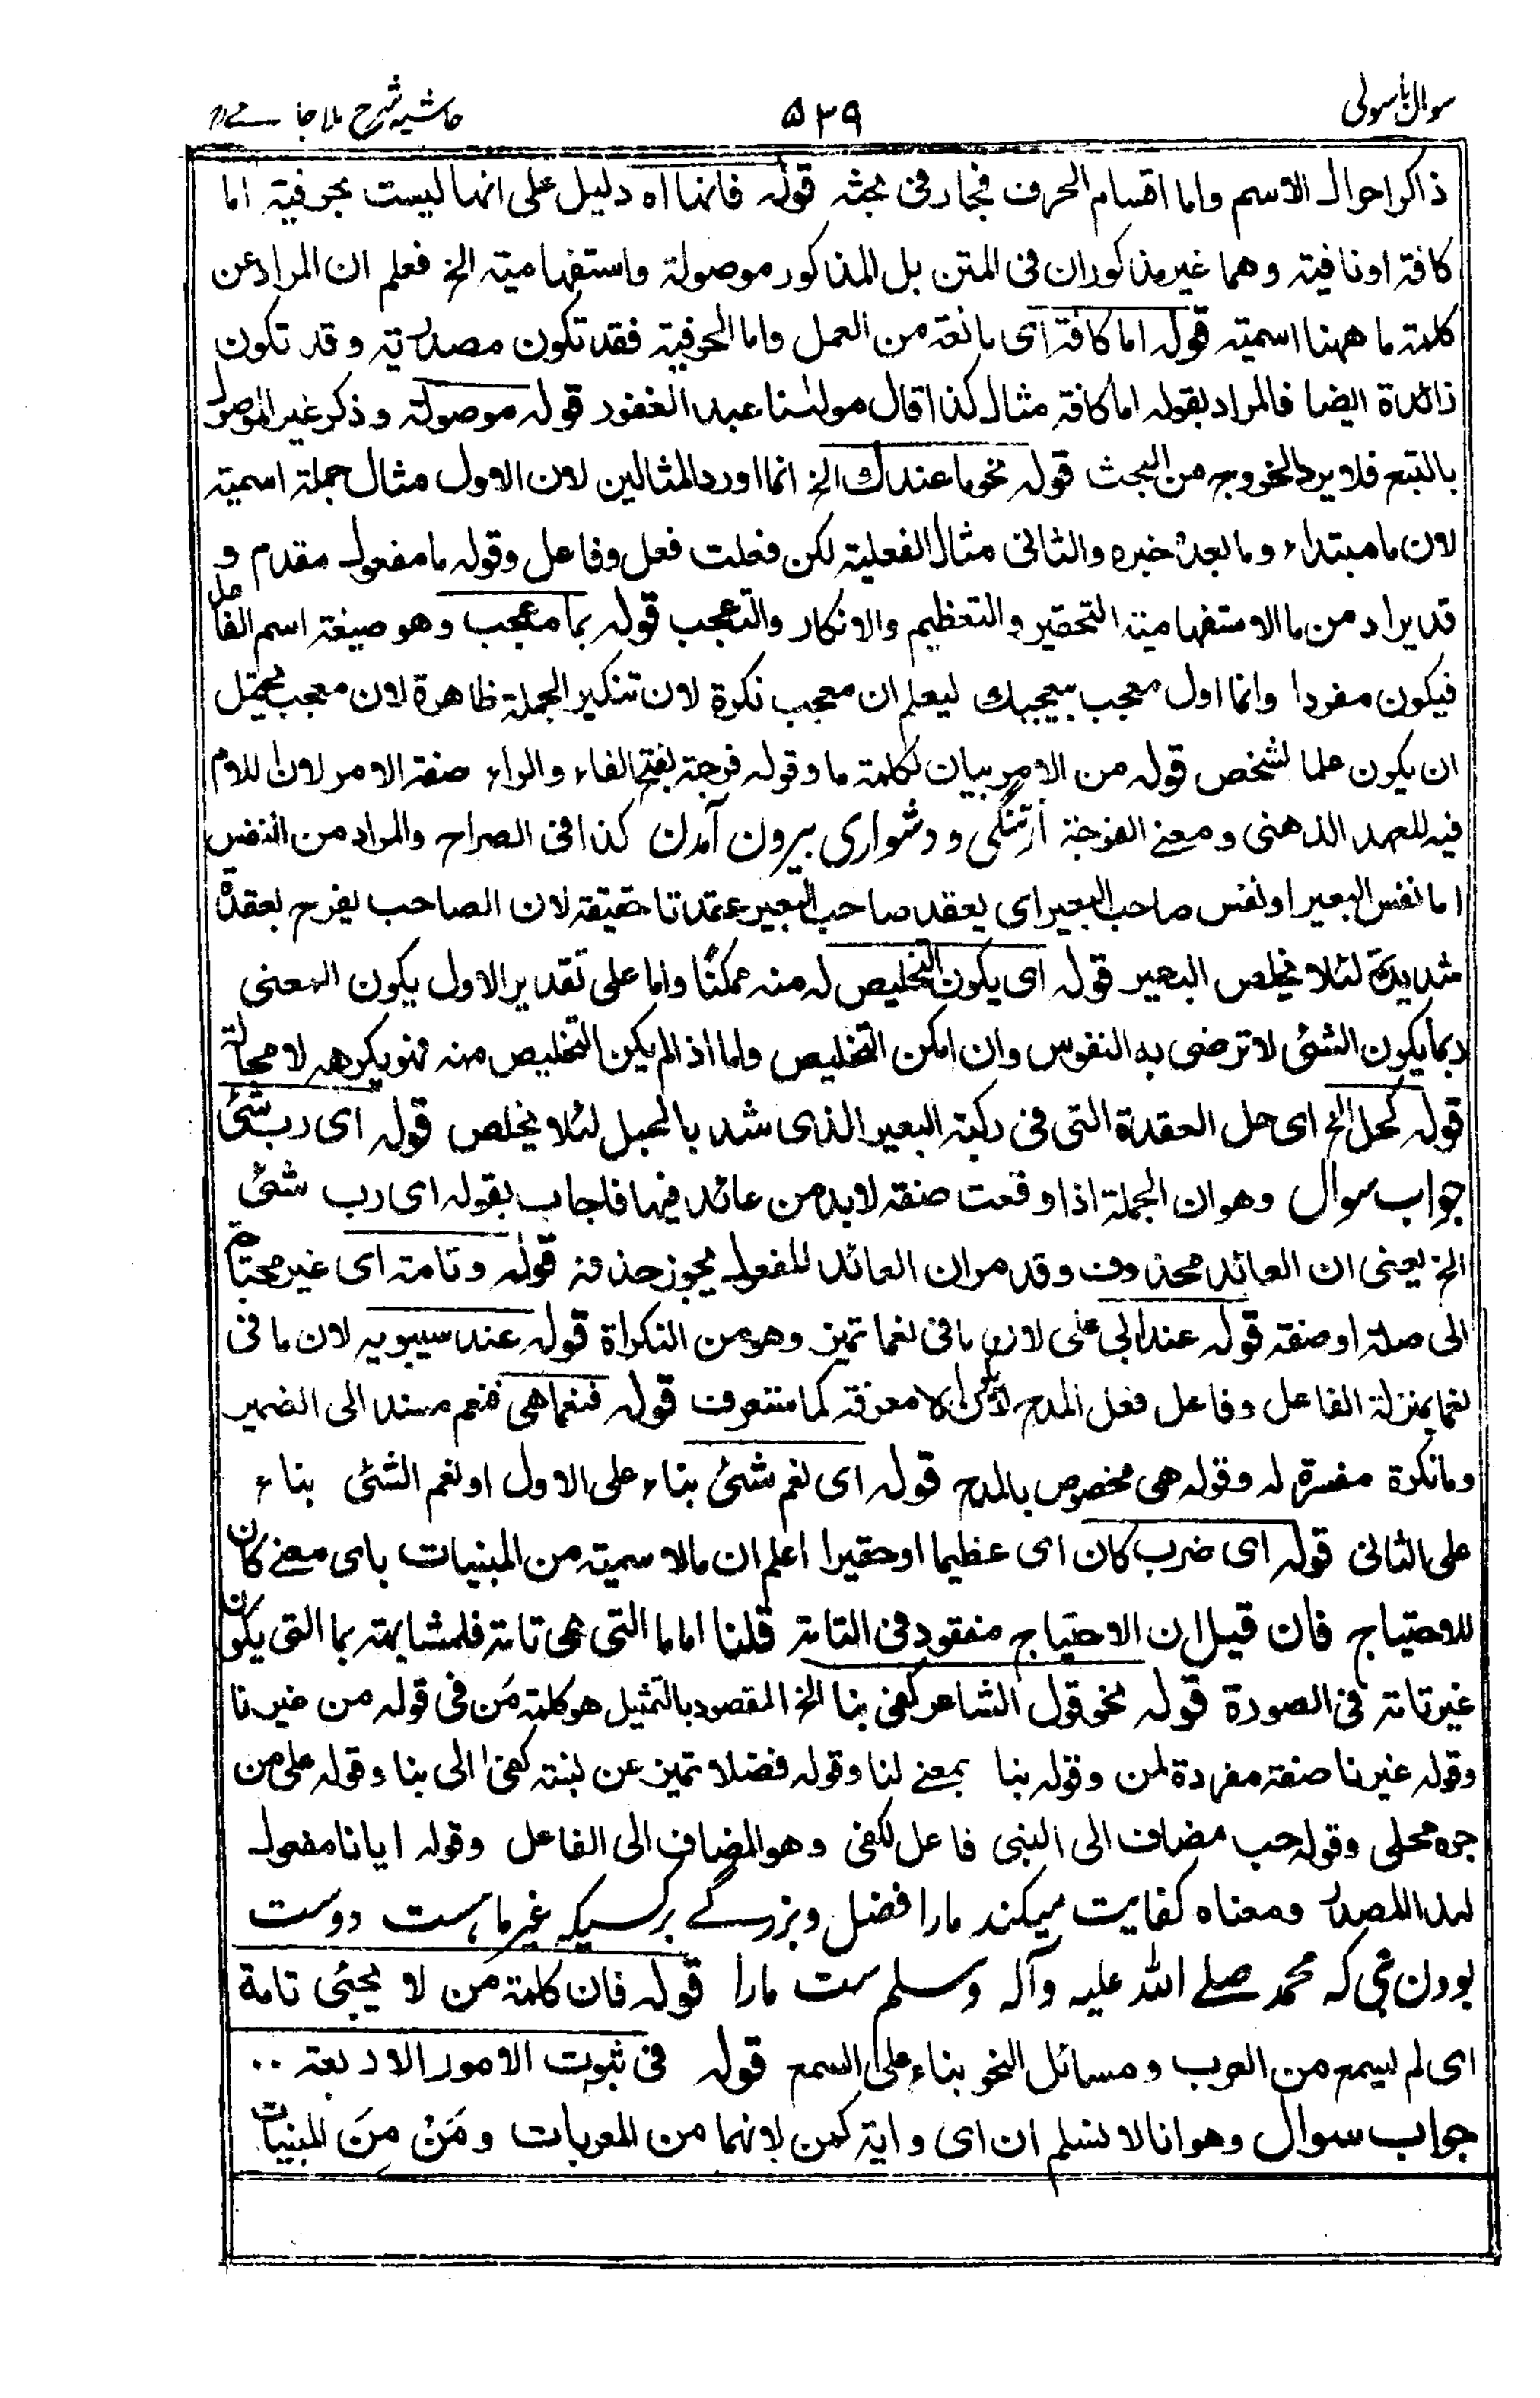 سوال باسولی
۵۲۹
حاشیہ شرح ملا جامے
ذاكر احوال الاسم واما اقسام الحرف فيجاء فى بحثه قوله فانها اه دليل على انها ليست بحرفية اما
كافة او نافية وهما غير مذكوران فى المتن بل المذكور موصولة واستفهامية الخ فعلم ان المراد عن
كلمة ما ههنا اسمية قوله اما كافة اى مانعة من العمل واما الحرفية فقد تكون مصدرية وقد تكون
زائدة ايضا فالمراد بقوله اما كافة مثال كذا قال مولٰنا عبد الغفور قوله موصولة وذكر غير الموصول
بالتبع فلا يرد الخروج من البحث قوله نحو ما عندك الخ انما اورد المثالين لان الاول مثال جملة اسمية
لان ما مبتداء وما بعده خبره والثانى مثال الفعلية لكن فعلت فعل وفاعل وقوله ما مفعول مقدم و
قد يراد من ما الاستفهامية التحقير والتعظيم والانكار والتعجب قوله بما معجب وهو صيغة اسم الفاعل
فيكون مفردا وانما اول معجب بيعجبك ليعلم ان معجب نكرة لان تنكير الجملة ظاهرة لان معجب يحتمل
ان يكون علما لشخص قوله من الامر بيان لكلمة ما وقوله فرجة بفتح الفاء والراء صفة الامر لان اللام
فيه للعهد الذهنى ومعنے الفرجة از تنگی و دشواری بیرون آمدن كذا فى الصراح والمراد من النفس
اما نفس البعير او نفس صاحب البعير اى يعقد صاحب البعير عقدتا حقيقة لان الصاحب يفرح بعقدة
شديدة لئلا يخلص البعير قوله اى يكون التخليص له منه ممكنًا واما على تقدير الاول يكون المعنى
ربما يكون الشئ لا ترضى به النفوس وان امكن التخليص واما اذا لم يكن التخليص منه فهو يكرهه لا محالة
قوله كحل الخ اى حل العقدة التى فى ركبة البعير الذى شد بالحبل لئلا يخلص قوله اى رب شئ
جواب سوال وهو ان الجملة اذا وقعت صفة لا بد من عائد فيها فاجاب بقوله اى رب شئ
الخ يعنى ان العائد محذوف وقد مر ان العائد المفعول يجوز حذفه قوله وتامة اى غير محتاج
الى صلة او صفة قوله عند ابى على لان ما فى نعما تميز وهو من النكراة قوله عند سيبويه لان ما فى
نعما بمنزلة الفاعل وفاعل فعل المدح لا يكون الا معرفة كما ستعرف قوله فنعما هى فنعم مسند الى الضمير
وما نكرة مفسرة له وقوله هى مخصوص بالمدح قوله اى نعم شئ بناء على الاول او نعم الشئ بناء
على الثانى قوله اى ضرب كان اى عظيما او حقيرا اعلم ان ما الاسمية من المبنيات باى معنے كان
للاحتياج فان قيل ان الاحتياج مفقود فى التامة قلنا اما ما التى هى تامة فلمشابهته بما التى يكون
غير تامة فى الصورة قوله نحو قول الشاعر كفى بنا الخ المقصود بالتمثيل هو كلمة مَن فى قوله من غيرنا
وقوله غيرنا صفة مفردة لمن وقوله بنا بمعنے لنا وقوله فضلا تميز عن نسبته كفى الى بنا وقوله على من
جره محلى وقوله حب مضاف الى النبى فاعل لكفى وهو المضاف الى الفاعل وقوله ايانا مفعول
لهذا المصدر ومعناه كفایت میکند مارا فضل و بزرگے بر کسیکہ غیر ما ہست دوست
بودن نبی کہ محمد صلے اللہ علیہ وآلہ وسلم ست مارا قوله فان كلمة من لا يجئى تامة
اى لم يسمع من العرب ومسائل النحو بناء على السمع قوله فى ثبوت الامور الاربعة ..
جواب سوال وهو انا لا نسلم ان اى واية كمن لانهما من المعربات ومَنْ مِنَ المبنيات